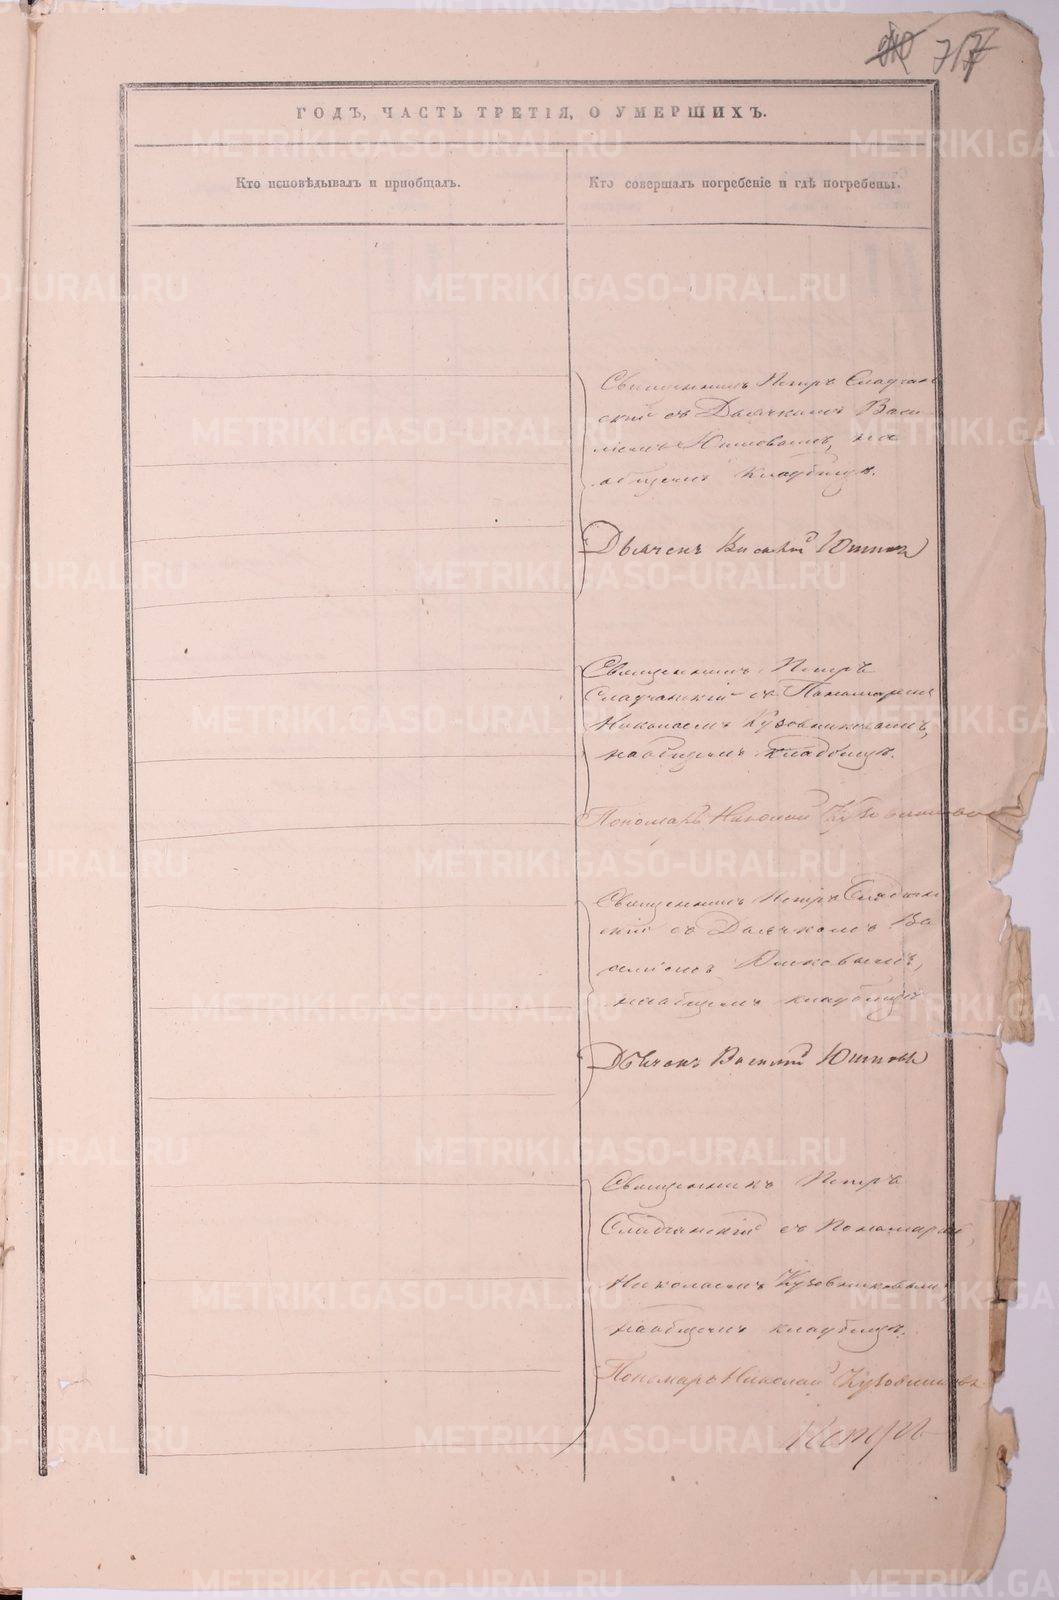 717
ГОДЪ, ЧАСТЬ ТРЕТІЯ, О УМЕРШИХЪ.
Кто исповѣдывалъ и пріобщалъ.
Кто совершалъ погребеніе и гдѣ погребены.
Священникъ Петръ Сладчан
скій съ Дьячкомъ Васи
ліемъ Юшковымъ, на
общемъ кладбищѣ.
Дьячекъ Василій Юшковъ
Священникъ Петръ
Сладчанскій съ Пономаремъ
Николаемъ Кузовниковымъ,
на общемъ кладбищѣ.
Пономарь Николай Кузовниковъ
Священникъ Петръ Сладчан
скій съ Дьячкомъ Ва
силіемъ Юшковымъ,
на общемъ кладбищѣ
Дьячекъ Василій Юшковъ
Священникъ Петръ
Сладчанскій съ Пономаремъ,
Николаемъ Кузовниковымъ
на общемъ кладбищѣ.
Пономарь Николай Кузовниковъ
METRIKI.GASO-URAL.RU